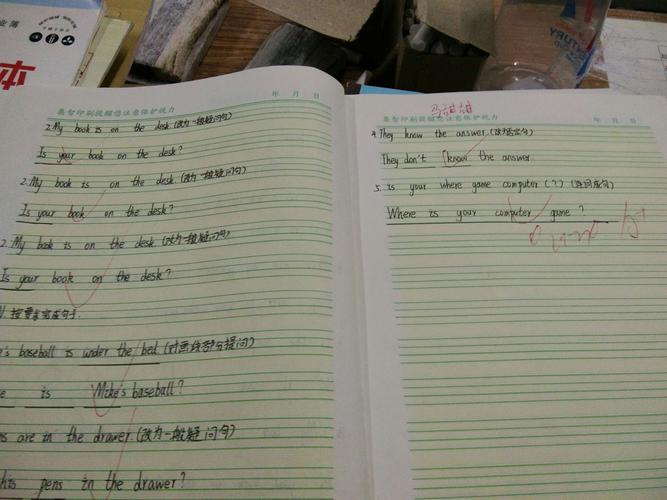 本
年 月 日
集智印刷提醒您注意保护视力
2. My book is on the desk. (改为一般疑问句)
Is your book on the desk?
2. My book is on the desk. (改为一般疑问句)
Is your book on the desk?
2. My book is on the desk. (改为一般疑问句)
Is your book on the desk?
按要求完成句子.
baseball is under the bed. (对画线部分提问)
is Mike's baseball?
are in the drawer. (改为一般疑问句)
his pens in the drawer?
集智印刷提醒您注意保护视力
年 月 日
4. They know the answer. (改为否定句)
They don't know the answer.
5. is your where game computer (?) (连词成句)
Where is your computer game?